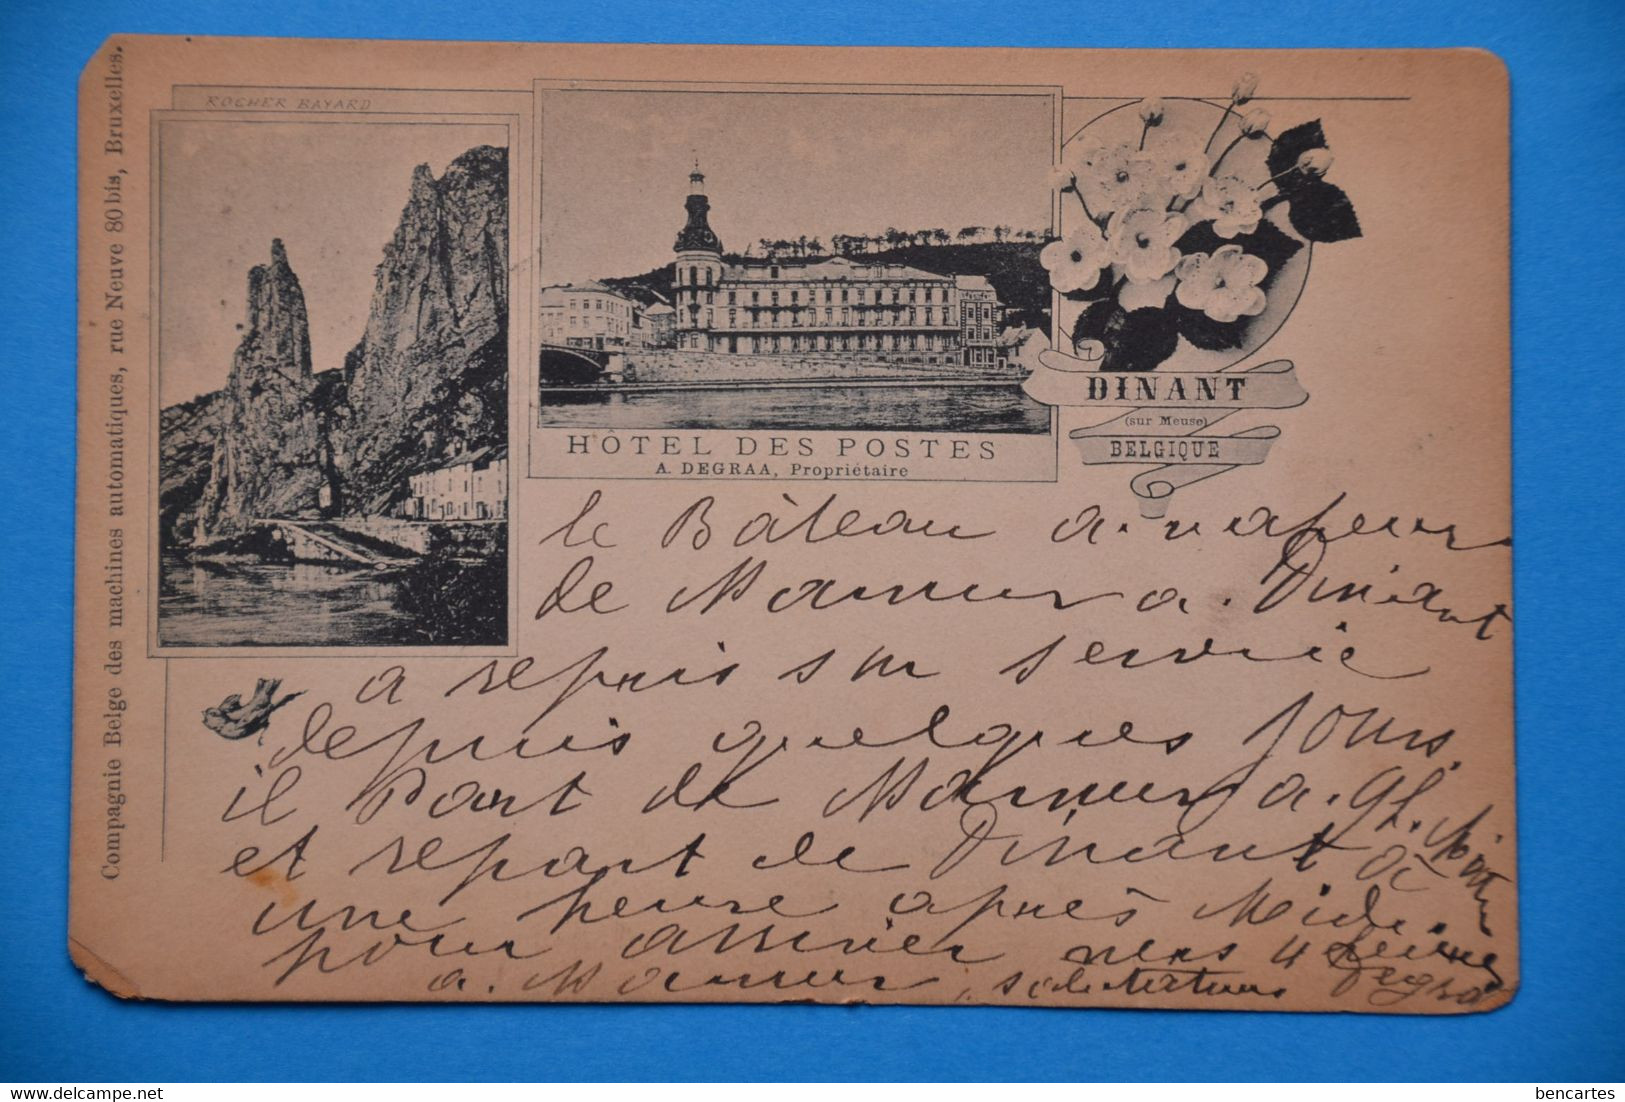 Compagnie Belge des machines automatiques, rue Neuve 80 bis, Bruxelles.
ROCHER BAYARD
HÔTEL DES POSTES
A. DEGRAA, Propriétaire
DINANT
(sur Meuse)
BELGIQUE
le Bâteau a vapeur
de Namur a Dinant
a repris son service
depuis quelques jours.
il Part de Namur a 9h. Matin
et repart de Dinant à
une heure après Midi
pour arriver vers 4 heures
a Namur, salutations Degraa
delcampe.net
bencartes